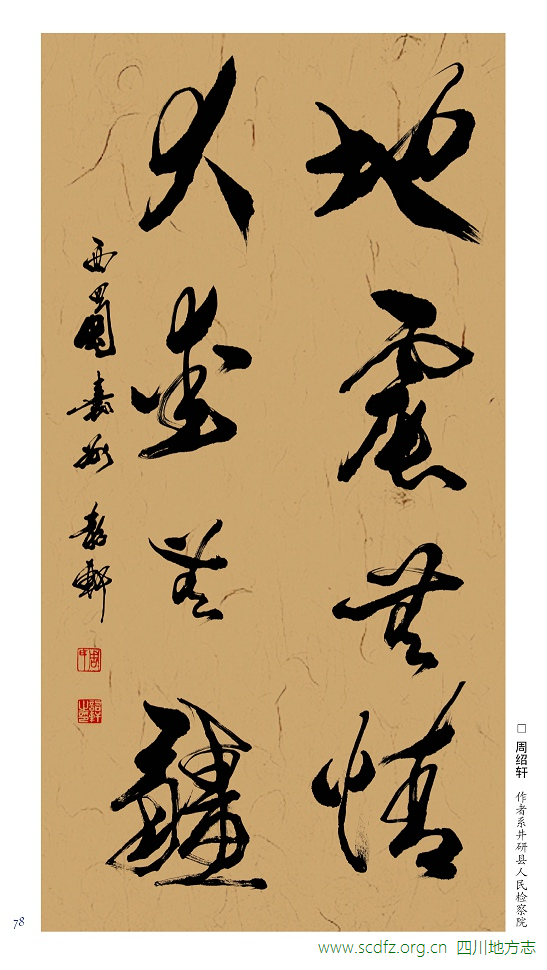 地震無情
大爱无疆
西蜀嘉州 紹軒
□ 周绍轩 作者系井研县人民检察院
78
www.scdfz.org.cn 四川地方志